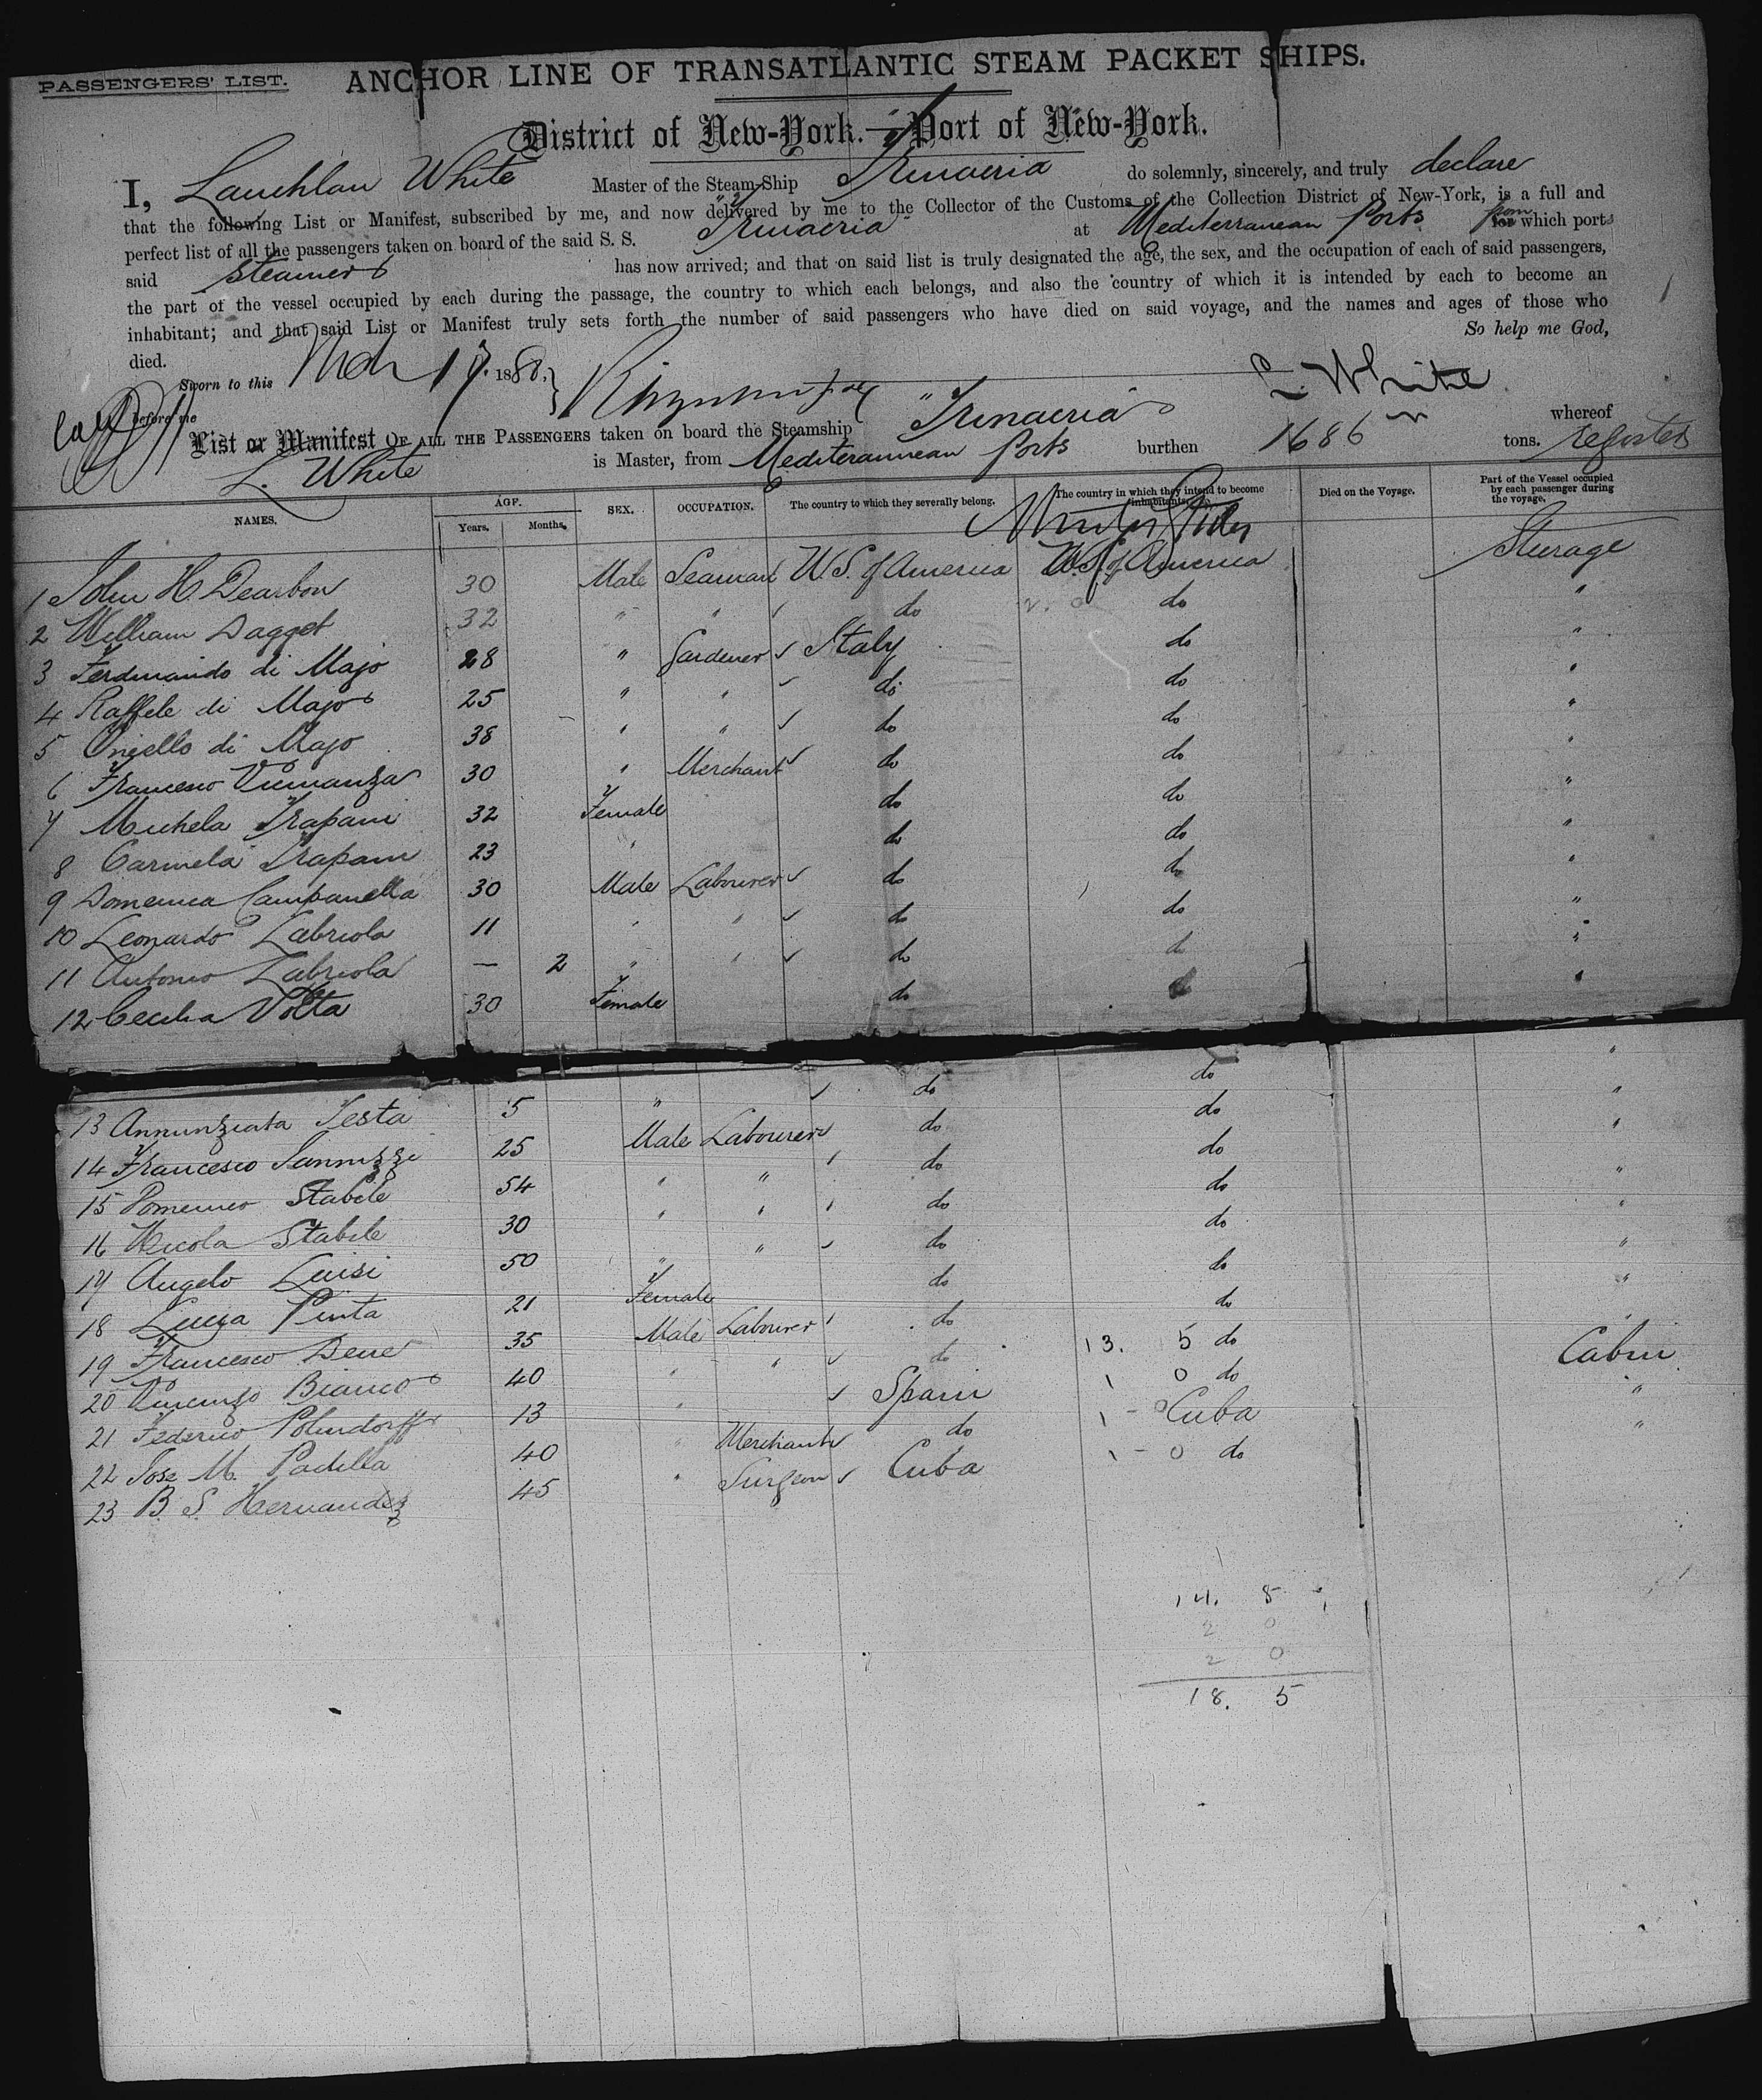 PASSENGERS' LIST. ANCHOR LINE OF TRANSATLANTIC STEAM PACKET SHIPS.
District of New-York.—Port of New-York.
I, Lauchlan White Master of the Steam-Ship "Trinacria" do solemnly, sincerely, and truly declare
that the following List or Manifest, subscribed by me, and now delivered by me to the Collector of the Customs of the Collection District of New-York, is a full and
perfect list of all the passengers taken on board of the said S. S. "Trinacria" at Mediterranean Ports from which ports
said Steamer has now arrived; and that on said list is truly designated the age, the sex, and the occupation of each of said passengers,
the part of the vessel occupied by each during the passage, the country to which each belongs, and also the country of which it is intended by each to become an
inhabitant; and that said List or Manifest truly sets forth the number of said passengers who have died on said voyage, and the names and ages of those who
died. So help me God,
Sworn to this Mch 17. 1880. L. White
before me
List or Manifest OF ALL THE PASSENGERS taken on board the Steamship "Trinacria" whereof
L. White is Master, from Mediterannean Ports burthen 1686 tons. register
NAMES. AGE. Years. Months. SEX. OCCUPATION. The country to which they severally belong. The country in which they intend to become inhabitants. Died on the Voyage. Part of the Vessel occupied by each passenger during the voyage.
1 John H. Dearbon 30 Male Seaman U.S. of America U.S. of America Steerage
2 William Dagget 32 " " do do "
3 Ferdinando di Majo 28 " Gardener Italy do "
4 Raffele di Majo 25 " " do do "
5 Aniello di Majo 38 " " do do "
6 Francesco Vicmanza 30 " Merchant do do "
7 Michela Trapani 32 Female do do "
8 Carmela Trapani 23 " do do "
9 Domenica Campanella 30 Male Labourer do do "
10 Leonardo Labriola 11 " " do do "
11 Antonio Labriola — 2 " " do do "
12 Cecilia Volta 30 Female do do "
13 Annunziata Testa 5 " do do "
14 Francesco Iannuzzi 25 Male Labourer do do "
15 Domenico Stabile 54 " " do do "
16 Nicola Stabile 30 " " do do "
17 Angelo Luisi 50 " " do do "
18 Lucza Pinta 21 Female do do "
19 Francesco Dene 35 Male Labourer do do "
20 Vincenzo Bianco 40 " " do 13. 5 do "
21 Federico Polindorff 13 " Spain 1 0 do Cabin
22 Jose M. Padilla 40 " Merchant do 1 - 0 Cuba "
23 B. S. Hernandez 45 " Surgeon Cuba 1 - 0 do "
14. 5
2 0
2 0
18. 5